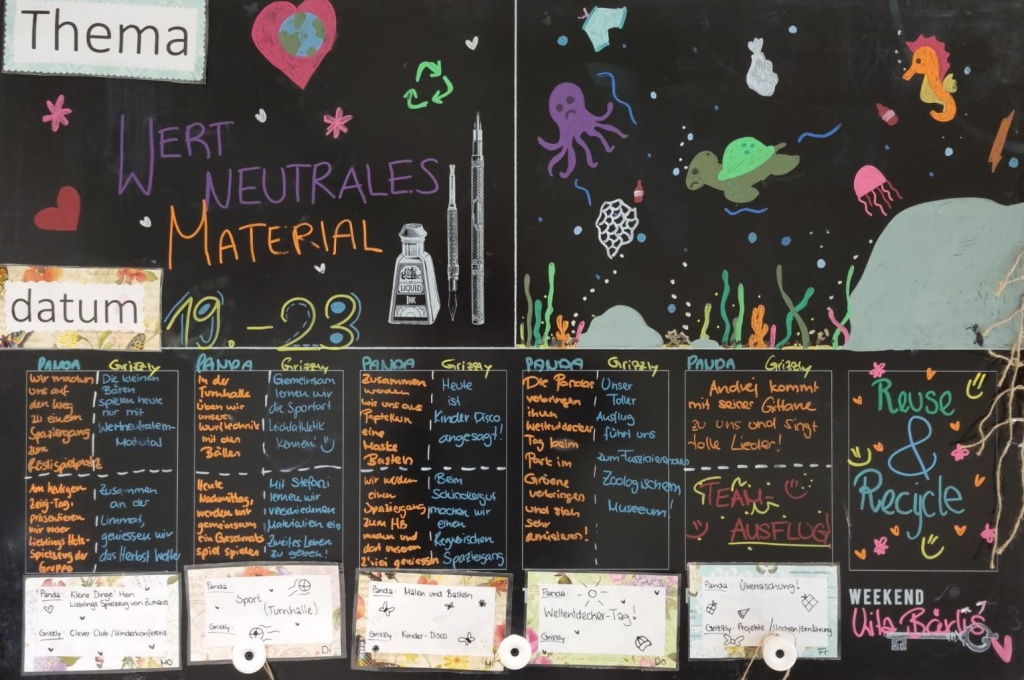 Thema
WERT
NEUTRALES
MATERIAL
LIQUID
INK
datum
19. - 23
PANDA Grizzly
Wir machen
uns auf
den Weg
zu einem
Spaziergang
zum
Röslispielplatz
Die kleinen
Bären
spielen heute
nur mit
Wertneutralem-
Material
Am heutigen
Zeig-Tag,
präsentieren
wir unser
Lieblings Holz-
Spielzeug der
Gruppe
Zusammen
an der
Limmat,
geniessen wir
das Herbst Wetter
PANDA Grizzly
In der
Turnhalle
üben wir
unsere
Wurftechnik
mit den
Bällen
Gemeinsam
lernen wir
die Sportart
Leichtathletik
kennen!
Heute
Nachmittag,
werden wir
gemeinsam
ein Geschmacks
spiel spielen
Mit Stefani
lernen wir
verschiedenen
Materialien ein
Zweites Leben
zu geben!
PANDA Grizzly
Zusammen
werden
wir uns aus
Papptellern
eine
Maske
Basteln
Heute
ist
Kinder-Disco
angesagt!
Wir werden
einen
Spaziergang
zum HB
machen und
dort unseren
Z'vieri geniessen
Beim
Schindlergut
machen wir
einen
Spaziergang
PANDA Grizzly
Die Pandas
verbringen
ihren
Weltentdecker
Tag beim
Park im
Grünen
verbringen
und sich
sehr
amüsieren!
Unser
Toller
Ausflug
führt uns
zum Faszinierenden
Zoologischem
Museeum!
PANDA Grizzly
Andrej kommt
mit seiner Gittare
zu uns und singt
tolle Lieder!
TEAM-
AUSFLUG!
Reuse
&
Recycle
Panda: Kleine Dinge' Mein
Lieblings Spielzeug von Zuhaus
Grizzly: Clever Club / Kinderkonferenz
Mo
Panda: Sport
(Turnhalle)
Grizzly:
Di
Panda: Malen und Basteln
Grizzly: Kinder-Disco
Mi
Panda:
Weltentdecker-Tag!
Grizzly:
Do
Panda: Überraschung!
Grizzly: Projekte / Kochen/Ernährung
Fr
WEEKEND
Vita Bärlis